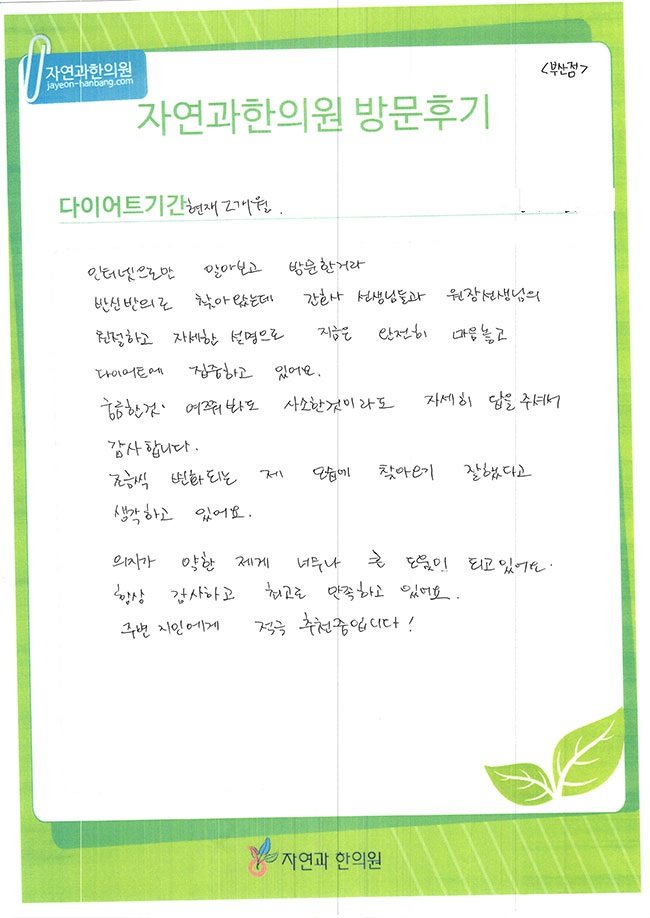 자연과한의원
jayeon-hanbang.com
<부산점>
자연과한의원 방문후기
다이어트기간 현재 2개월.
인터넷으로만 알아보고 방문한거라
반신반의로 찾아왔는데 간호사 선생님들과 원장선생님의
친절하고 자세한 설명으로 지금은 완전히 마음놓고
다이어트에 집중하고 있어요.
궁금한것. 여쭤봐도 사소한것이라도 자세히 답을 주셔서
감사합니다.
조금씩 변화되는 제 모습에 찾아오기 잘했다고
생각하고 있어요.
의지가 약한 제게 너무나 큰 도움이 되고있어요.
항상 감사하고 최고로 만족하고 있어요.
주변 지인에게 적극 추천중입니다!
자연과 한의원